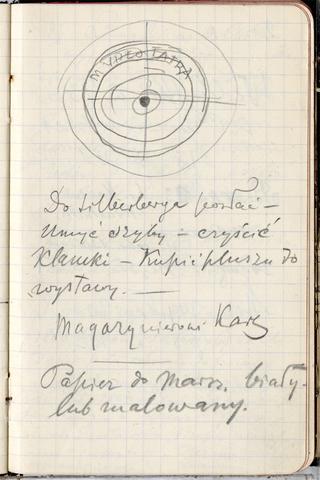 Do Silberberga posłać –
Umyć szyby – czyścić
Klamki – Kupić pluszu do
wystawy. —
Magazynierowi
Papier do masz. biały
lub malowany.